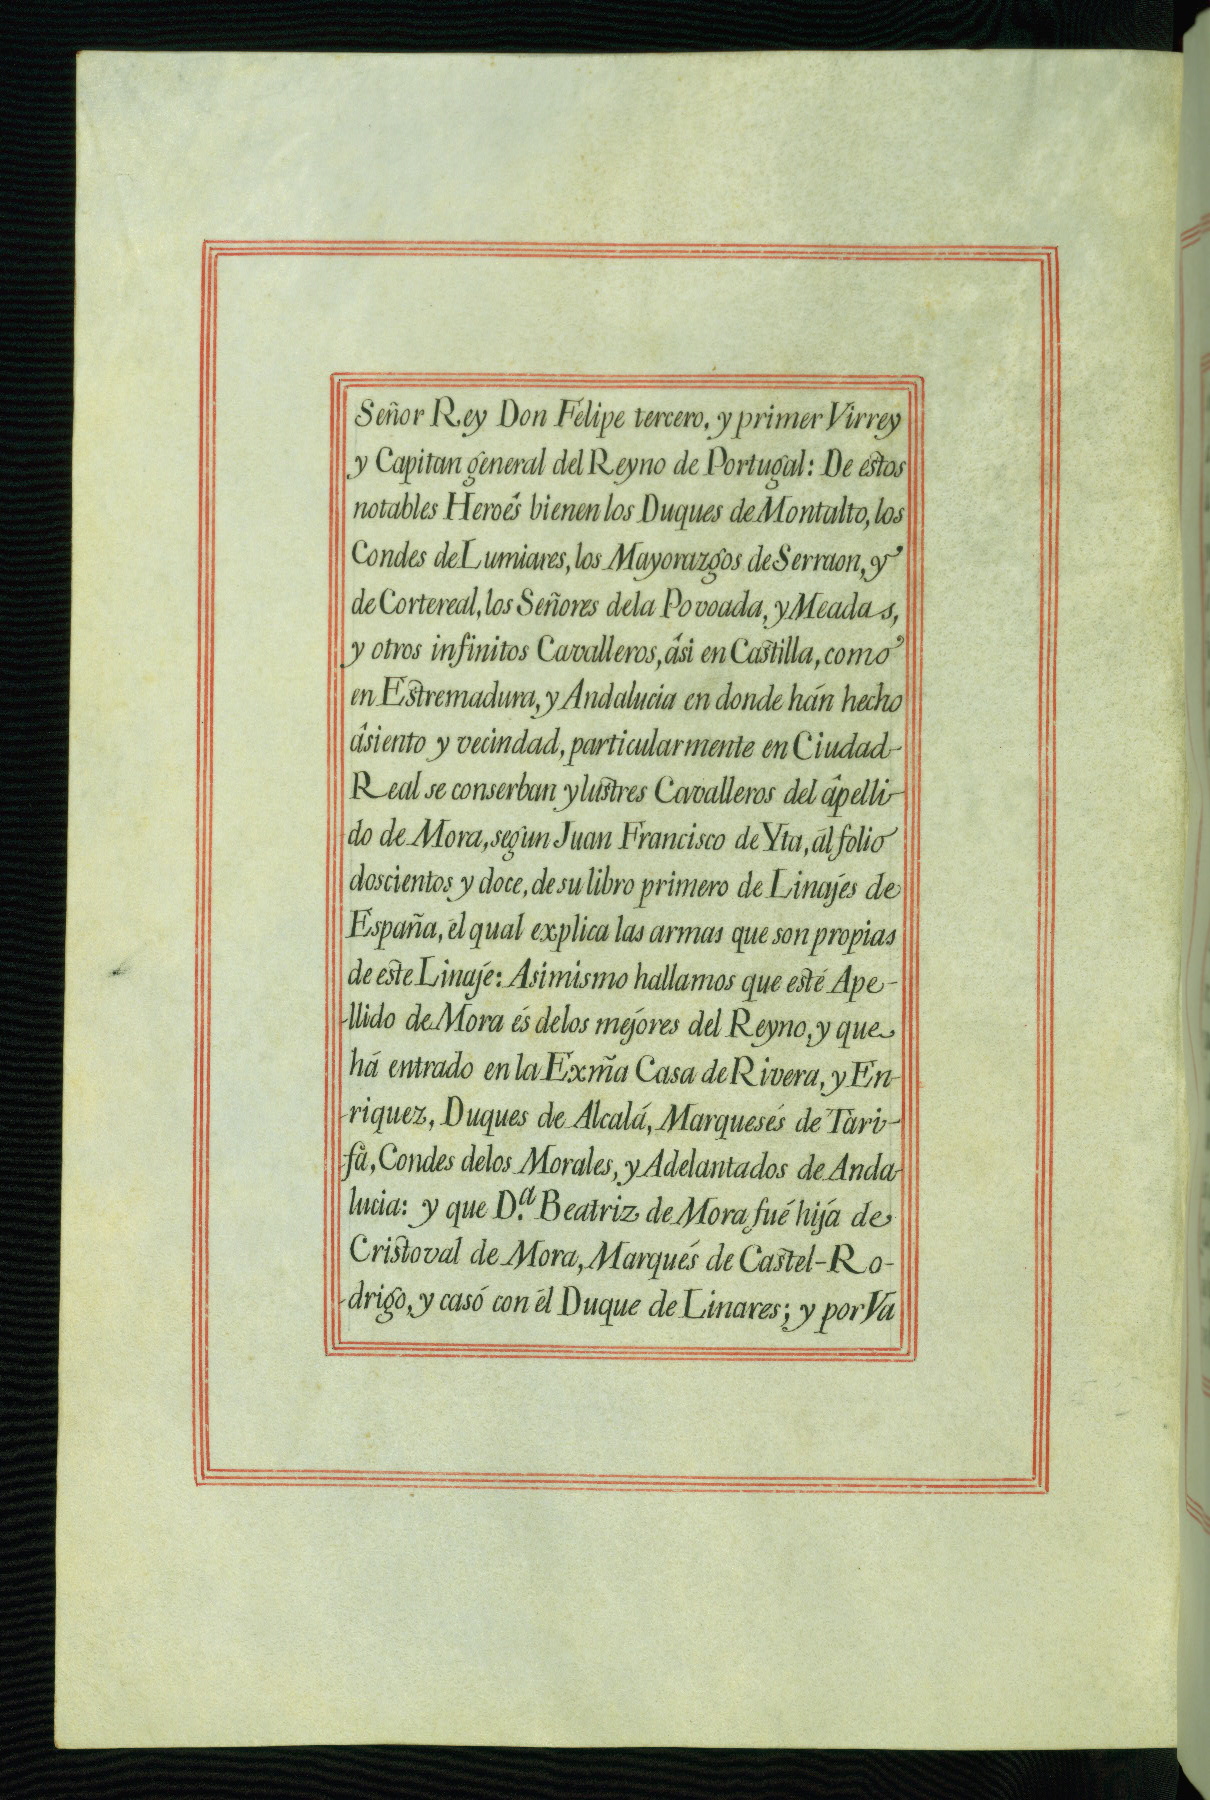 Señor Rey Don Felipe tercero, y primer Virrey
y Capitan general del Reyno de Portugal: De éstos
notables Heroés bienen los Duques de Montalto, los
Condes de Lumiares, los Mayorazgos de Serraon, y
de Cortereal, los Señores dela Povoada, y Meadas,
y otros infinitos Cavalleros, ási en Castilla, como
en Estremadura, y Andalucia en donde hán hecho
âsiento y vecindad, particularmente en Ciudad-
Real se conserban ylustres Cavalleros del âpelli-
do de Mora, segun Juan Francisco de Yta, ál folio
doscientos y doce, de su libro primero de Linajés de
España, él qual explica las armas que son propias
de este Linaje: Asimismo hallamos que esté Ape-
llido de Mora és delos mejores del Reyno, y que
há entrado en la Exm̃a Casa de Rivera, y En-
riquez, Duques de Alcalá, Marquesés de Tàri-
fà, Condes delos Morales, y Adelantados de Anda-
lucia: y que D.ª Beatriz de Mora fué hijá de
Cristoval de Mora, Marqués de Castel-Ro-
drigo, y casó con él Duque de Linares; y por Va